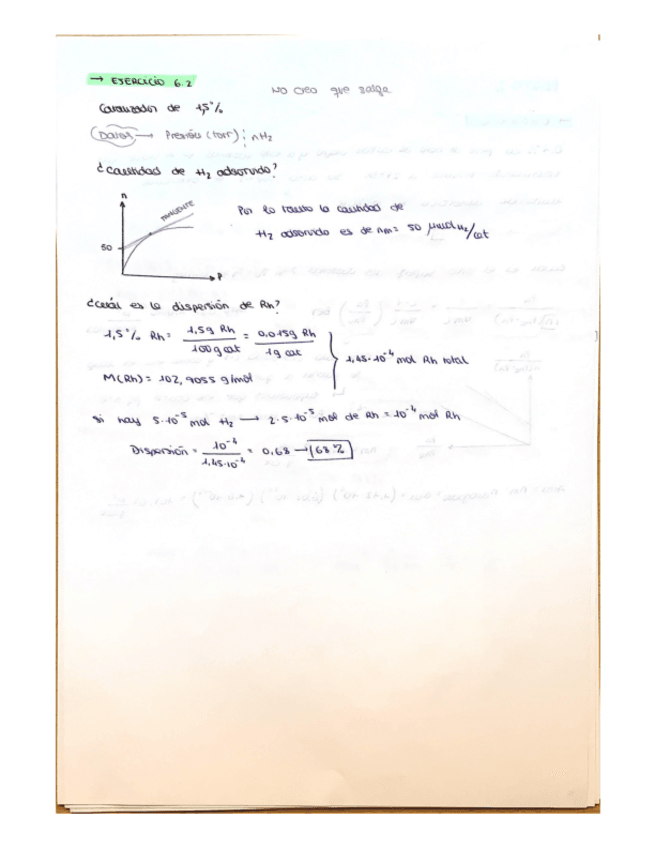 → EJERCICIO 6.2
No creo que salga
Catalizador de 1,5%
Datos → Presión (torr) ; nH₂
¿Cantidad de H₂ adsorvido?
n
TANGENTE
50
P
Por lo tanto la cantidad de
H₂ adsorvido es de nm = 50 μmol H₂/cat
¿Cuál es la dispersión de Rh?
1,5% Rh = 1,5g Rh / 100g cat = 0,015g Rh / 1g cat
1,45·10⁻⁴ mol Rh total
M(Rh) = 102,9055 g/mol
si hay 5·10⁻⁵ mol H₂ → 2·5·10⁻⁵ mol de Rh = 10⁻⁴ mol Rh
Dispersión = 10⁻⁴ / 1,45·10⁻⁴ = 0,68 → 68%